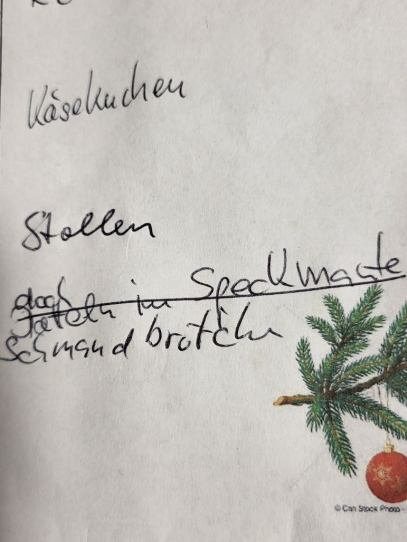 Käsekuchen
Stollen
doch
Datteln im Speckmante
Schmandbrötchn
© Can Stock Photo -